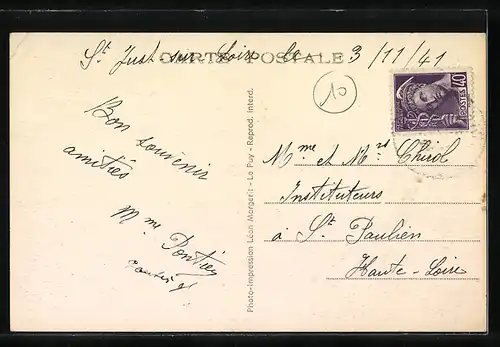 St Just sur Loire le 3/11/41
CARTE POSTALE
10
40
POSTES
Bon souvenir
amitiés
Mme
Photo-Impression Léon Margerit - Le Puy - Reprod. interd.
Mme et Mrs Chirol
Instituteurs
à St Paulien
Haute-Loire